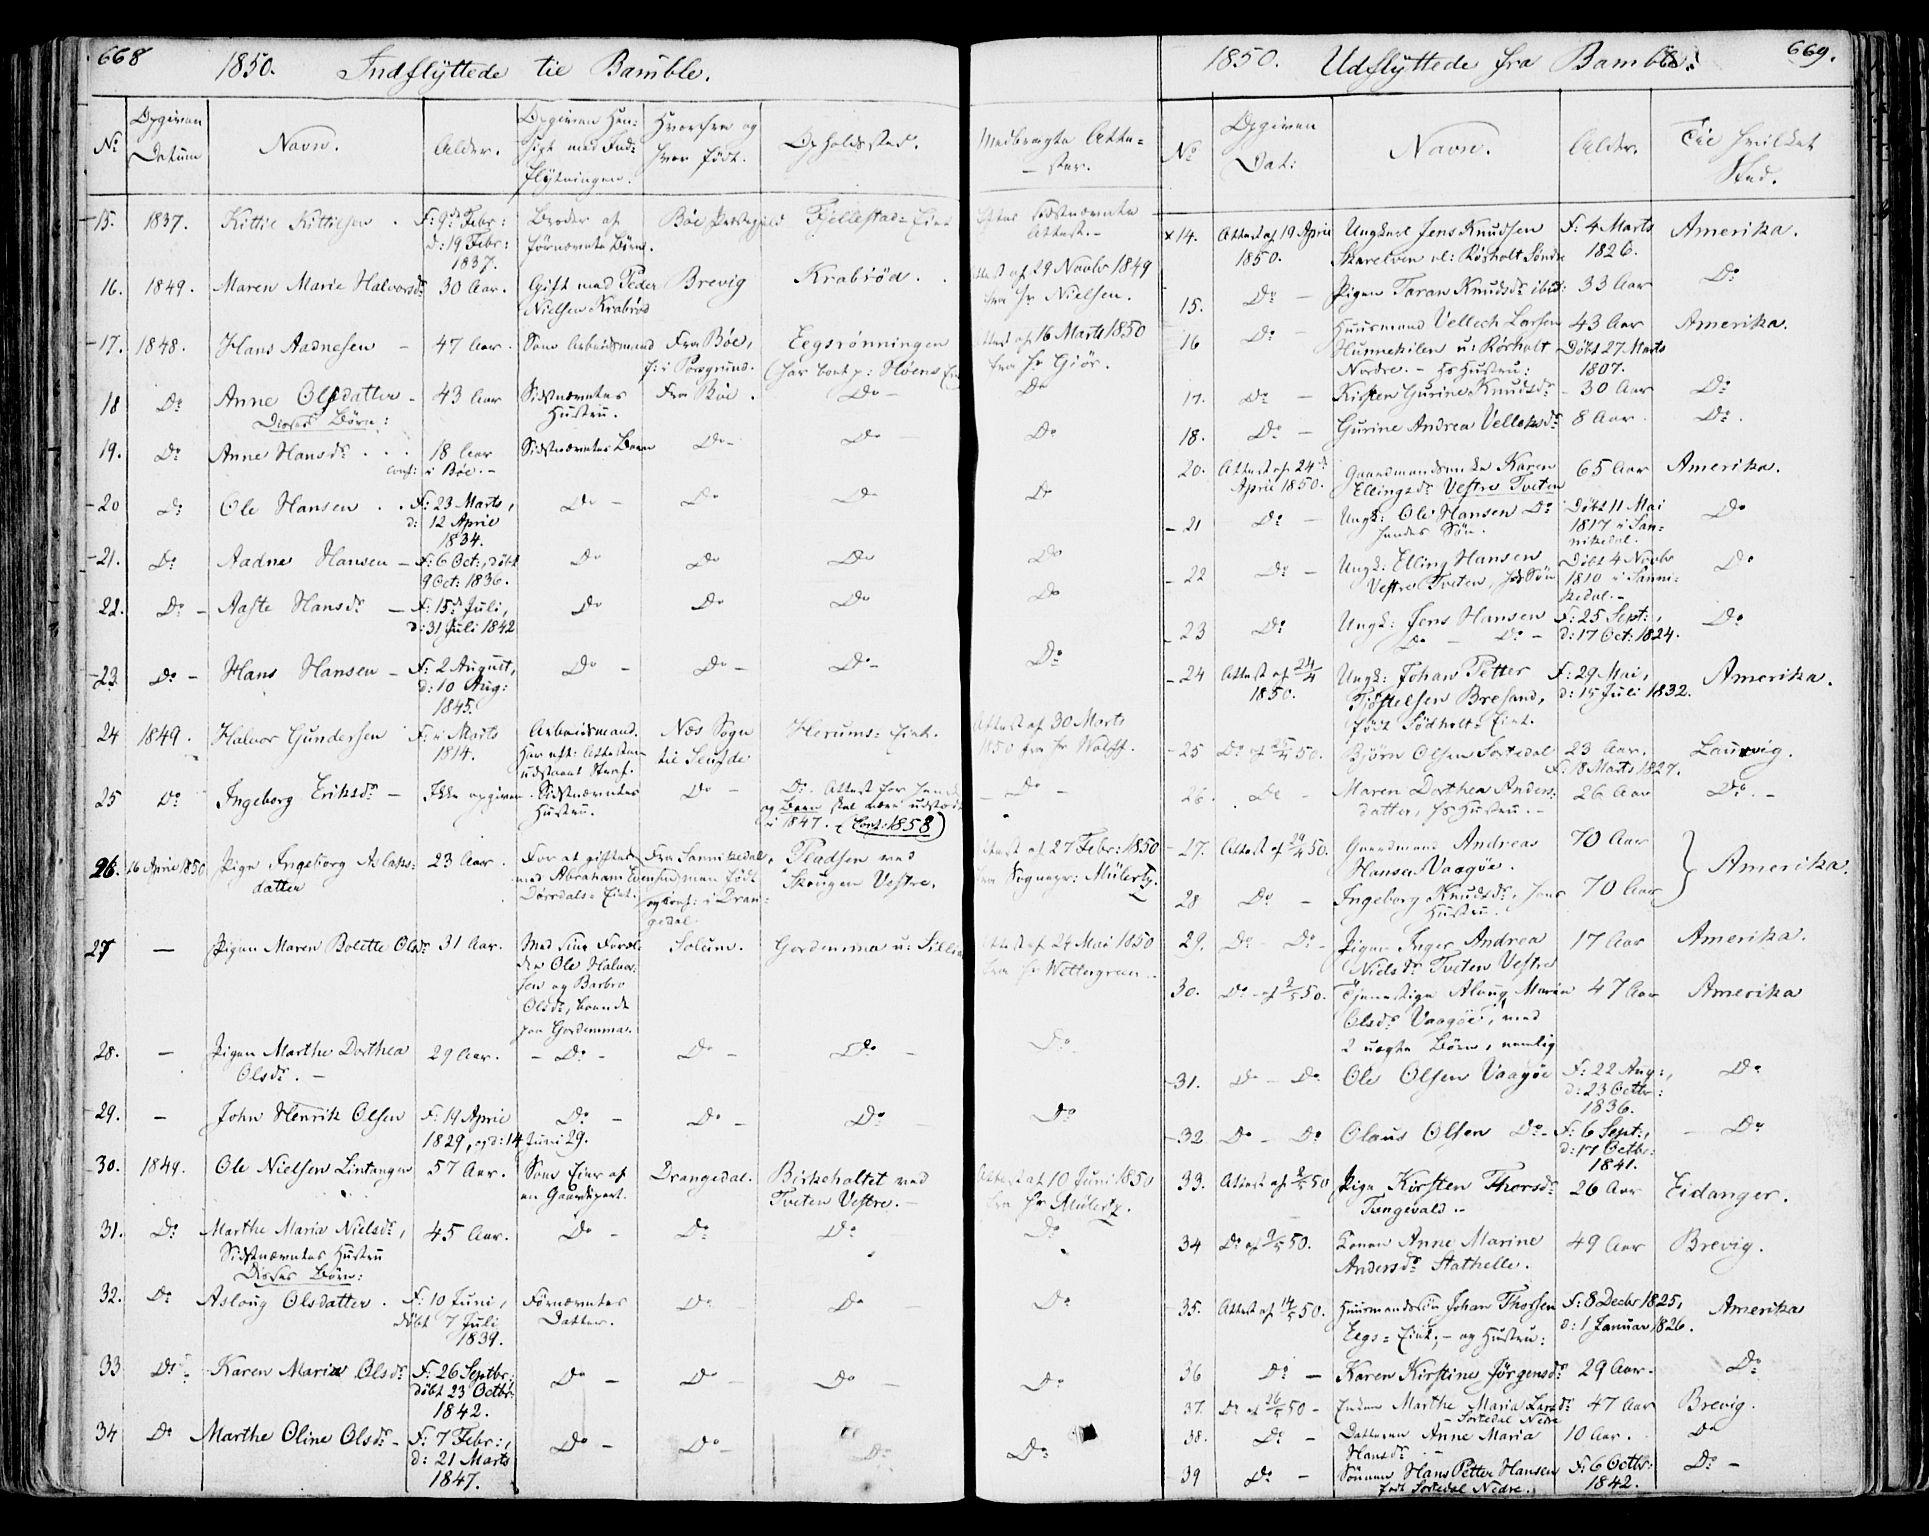 668
1850. Indflyttede til Bamble.
No
Opgiven Datum
Navn.
Alder.
Opgiven Hensigt med Indflytningen.
Hvorfra og hvor født.
Opholdssted.
Medbragte Attester.
15. 1837. Kittil Kittilsen. F: 9de Febr: d: 19 Febr: 1837. Broder af førnævnte Børn. Bøe Præstegjeld Fjellestad-Eiet Attest.-
16. 1849. Maren Marie Halvorsdr 30 Aar. Gift med Peder Nielsen Krabrød Brevig Krabrød. Attest af 29 Novbr 1849 fra Hr Nielsen.
17. 1848. Hans Aadnesen - 47 Aar. Som Arbeidsmand Fra Bøe, f: i Porsgrund. Eegsrønningen Attest af 16 Marts 1850 fra Hr Giør.
18 Do Anne Olsdatter - 43 Aar Sidstnævntes Hustru. Fra Bøe. Do - Do
Disses Børn:
19. Do Anne Hansdr 18 Aar conf: i Bøe.- Sidstnævntes Børn Do - Do - Do
20 Do Ole Hansen F: 23 Marts, d: 12 April 1834. Do - Do Do Do
21. Do Aadne Hansen - F: 6 Oct:, døbt 9 Oct: 1836. Do Do Do Do
22. Do - Aaste Hansdr - F: 15de Juli, d: 31 Juli 1842 Do Do Do Do
23. Do - Hans Hansen - F: 2 August, d: 10 Aug: 1845. Do - Do - Do - Do
24 1849. Halvor Gundersen F: i Marts 1814. Arbeidsmand. Har eft: Attesten udstaaet Straf. Næs Sogn Herums-Eiet. Attest af 30 Marts 1850 fra Hr
25 Do Ingeborg Eriksdr - Ikke opgiven. Sidstnævntes Hustru. Do - Do. Attest for og Børn skal være udstædt i 1847. (Conf: 1858) - Do -
26. 16 April 1850 Pigen Ingeborg Aslaksdatter 23 Aar. For at giftes med Abraham Dørdals-Eiet. Fra Sannikedal, født i Drangedal. Pladsen ved Skougen Vestre. Attest af 27 Febr: 1850 fra Sognepr: Mülertz.
27 - Pigen Maren Bolette Olsdr 31 Aar. Med sine Forældre Ole Halvorsen og Barbro Olsdr, boende paa Gordemma. Solum. Gordemma u: Attest af 24 Mai 1850 fra Hr Wettergreen.
28. - Pigen Marthe Dorthea Olsdr. - 29 Aar. - Do - Do - Do - Do -
29. - John Henrik Olsen F: 14 April 1829, og d: 14 Juni 29. Do - Do - Do Do
30. 1849. Ole Nielsen Lintangen 57 Aar. Som Eier af en Gaardpart. Drangedal. Birkeholtet ved Tveten Vestre. - Attest af 10 Juni 1850 fra Hr Mülertz.
31. Do Marthe Maria Nielsdr, Sidstnævntes Hustru 45 Aar. Do - Do Do - Do
Disses Børn:
32. Do Asloug Olsdatter. F: 10 Juni, døbt 7 Juli 1839. Førnævntes Datter. Do Do Do
33 Do - Karen Maria Olsdr F: 26 Septbr: døbt 23 Octbr: 1842. Do - Do - Do - Do
34 Do Marthe Oline Olsdr - F: 7 Febr:, d: 21 Marts 1847. Do - Do - Do Do -
669.
1850. Udflyttede fra Bamble.
No
Opgiven Dat:
Navn.
Alder.
Til hvilket Sted.
x 14. Attest af 19 April 1850. Ungkarl Jens Knudsen Skarelven u: Rørholt Søndre F: 4 Marts 1826. Amerika.
15. Do - Pigen Taran Knudsdr ibid: 33 Aar Do
16 Do - Huusmand Vellech Larsen Hunnekilen u: Rørholt Nordre. - Hs Hustru: 43 Aar Døbt 27 Marts 1807. Amerika.
17. Do - Kirsten Gurine Knudsdr - 30 Aar Do
18. Do - Gurine Andrea Velleksdr 8 Aar. Do.
20. Attest af 24de April 1850. Gaardmandsenke Karen Ellingsdr Vestre Tveten 65 Aar Amerika.
21 Do - Ungk: Ole Hansen Do hendes Søn. Døbt 11 Mai 1817 i Sannikedal. Do
22 Do - Ungk: Elling Hansen Vestre Tveten, hds Søn Døbt 4 Novbr 1810 i Sannikedal.- Do
23 Do Ungk: Jens Hansen Do - Do - F: 25 Sept:, d: 17 Oct: 1824. Do
24 Attest af 24/4 1850. Ungk: Johan Petter Tjøstelsen Bresand, født Sødholt-Eiet. F: 29 Mai, d: 15 Juli 1832. Amerika.
25 Do af 25/4 50. Bjørn Olsen Sortedal 23 Aar. F: 18 Marts 1827. Laurvig.
26. Do - Maren Dorthea Andersdatter, Hs Hustru. - 26 Aar Do. -
27. Attest af 29/4 50. Gaardmand Andreas Hansen Vaagøe. 70 Aar } Amerika.
28 Do - Ingeborg Knudsdr, hans Hustru. 70 Aar
29. Do - Do - Pigen Inger Andrea Nielsdr Tveten Vestre 17 Aar Amerika.
30. Do - af 2/5 50. Tjenestpige Aloug Maria Olsdr Vaagöe, med 2 uægte Børn, nemlig 47 Aar Amerika
31. Do - Do Ole Olsen Vaagøe F: 22 Aug:, d: 23 Octbr: 1836. Do
32 Do - Do Olaus Olsen Do - F: 6 Sept:, d: 17 Octbr: 1841. - Do
33. Attest af 2/5 50 Pige Kirsten Thorsdr Tangvald. - 26 Aar Eidanger.
34 Do af 9/5 50. Konen Anne Marine Andersdr Stathelle. 49 Aar Brevig.
35. Attest af 14/5 50. Huusmandssøn Johan Thorsen Eegs-Eiet, - og Hustru: F: 8 Decbr 1825, d: 1 Januar 1826. Amerika
36 Do - Karen Kirstine Jörgensdr 29 Aar. Do
37. Do af 26/5 50 - Enken Marthe Maria Larsdr - Sortedal Nedre 47 Aar Brevig.
38. Do - Datteren Anne Maria Hansdr 10 Aar. Do
39 Do - Sønnen Hans Petter Hansen født Sortedal Nedre. F: 6 Octbr: 1842. Do -